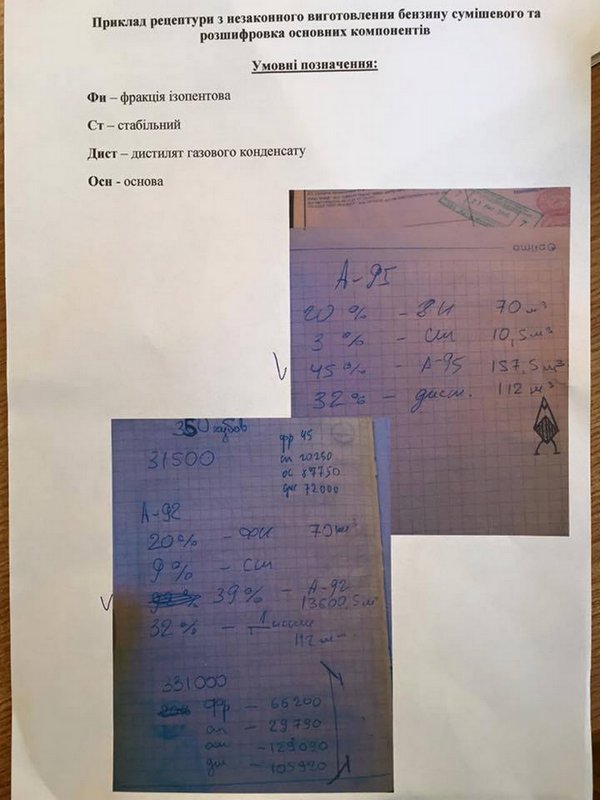 Приклад рецептури з незаконного виготовлення бензину сумішевого та
розшифровка основних компонентів
Умовні позначення:
Фи – фракція ізопентова
Ст – стабільний
Дист – дистилят газового конденсату
Осн - основа
А-95
20 % - ФИ 70 м³
3 % - ст 10,5 м³
45 % - А-95 157,5 м³
32 % - дист. 112 м³
350 кубов
31500
фр 45
ст 20250
ос 87750
дис 72000
А-92
20 % - ФИ 70 м³
9 % - ст
39 % - А-92
32 %
112 м
331000
Фр - 66200
ст - 29790
осн - 129090
дис - 105920